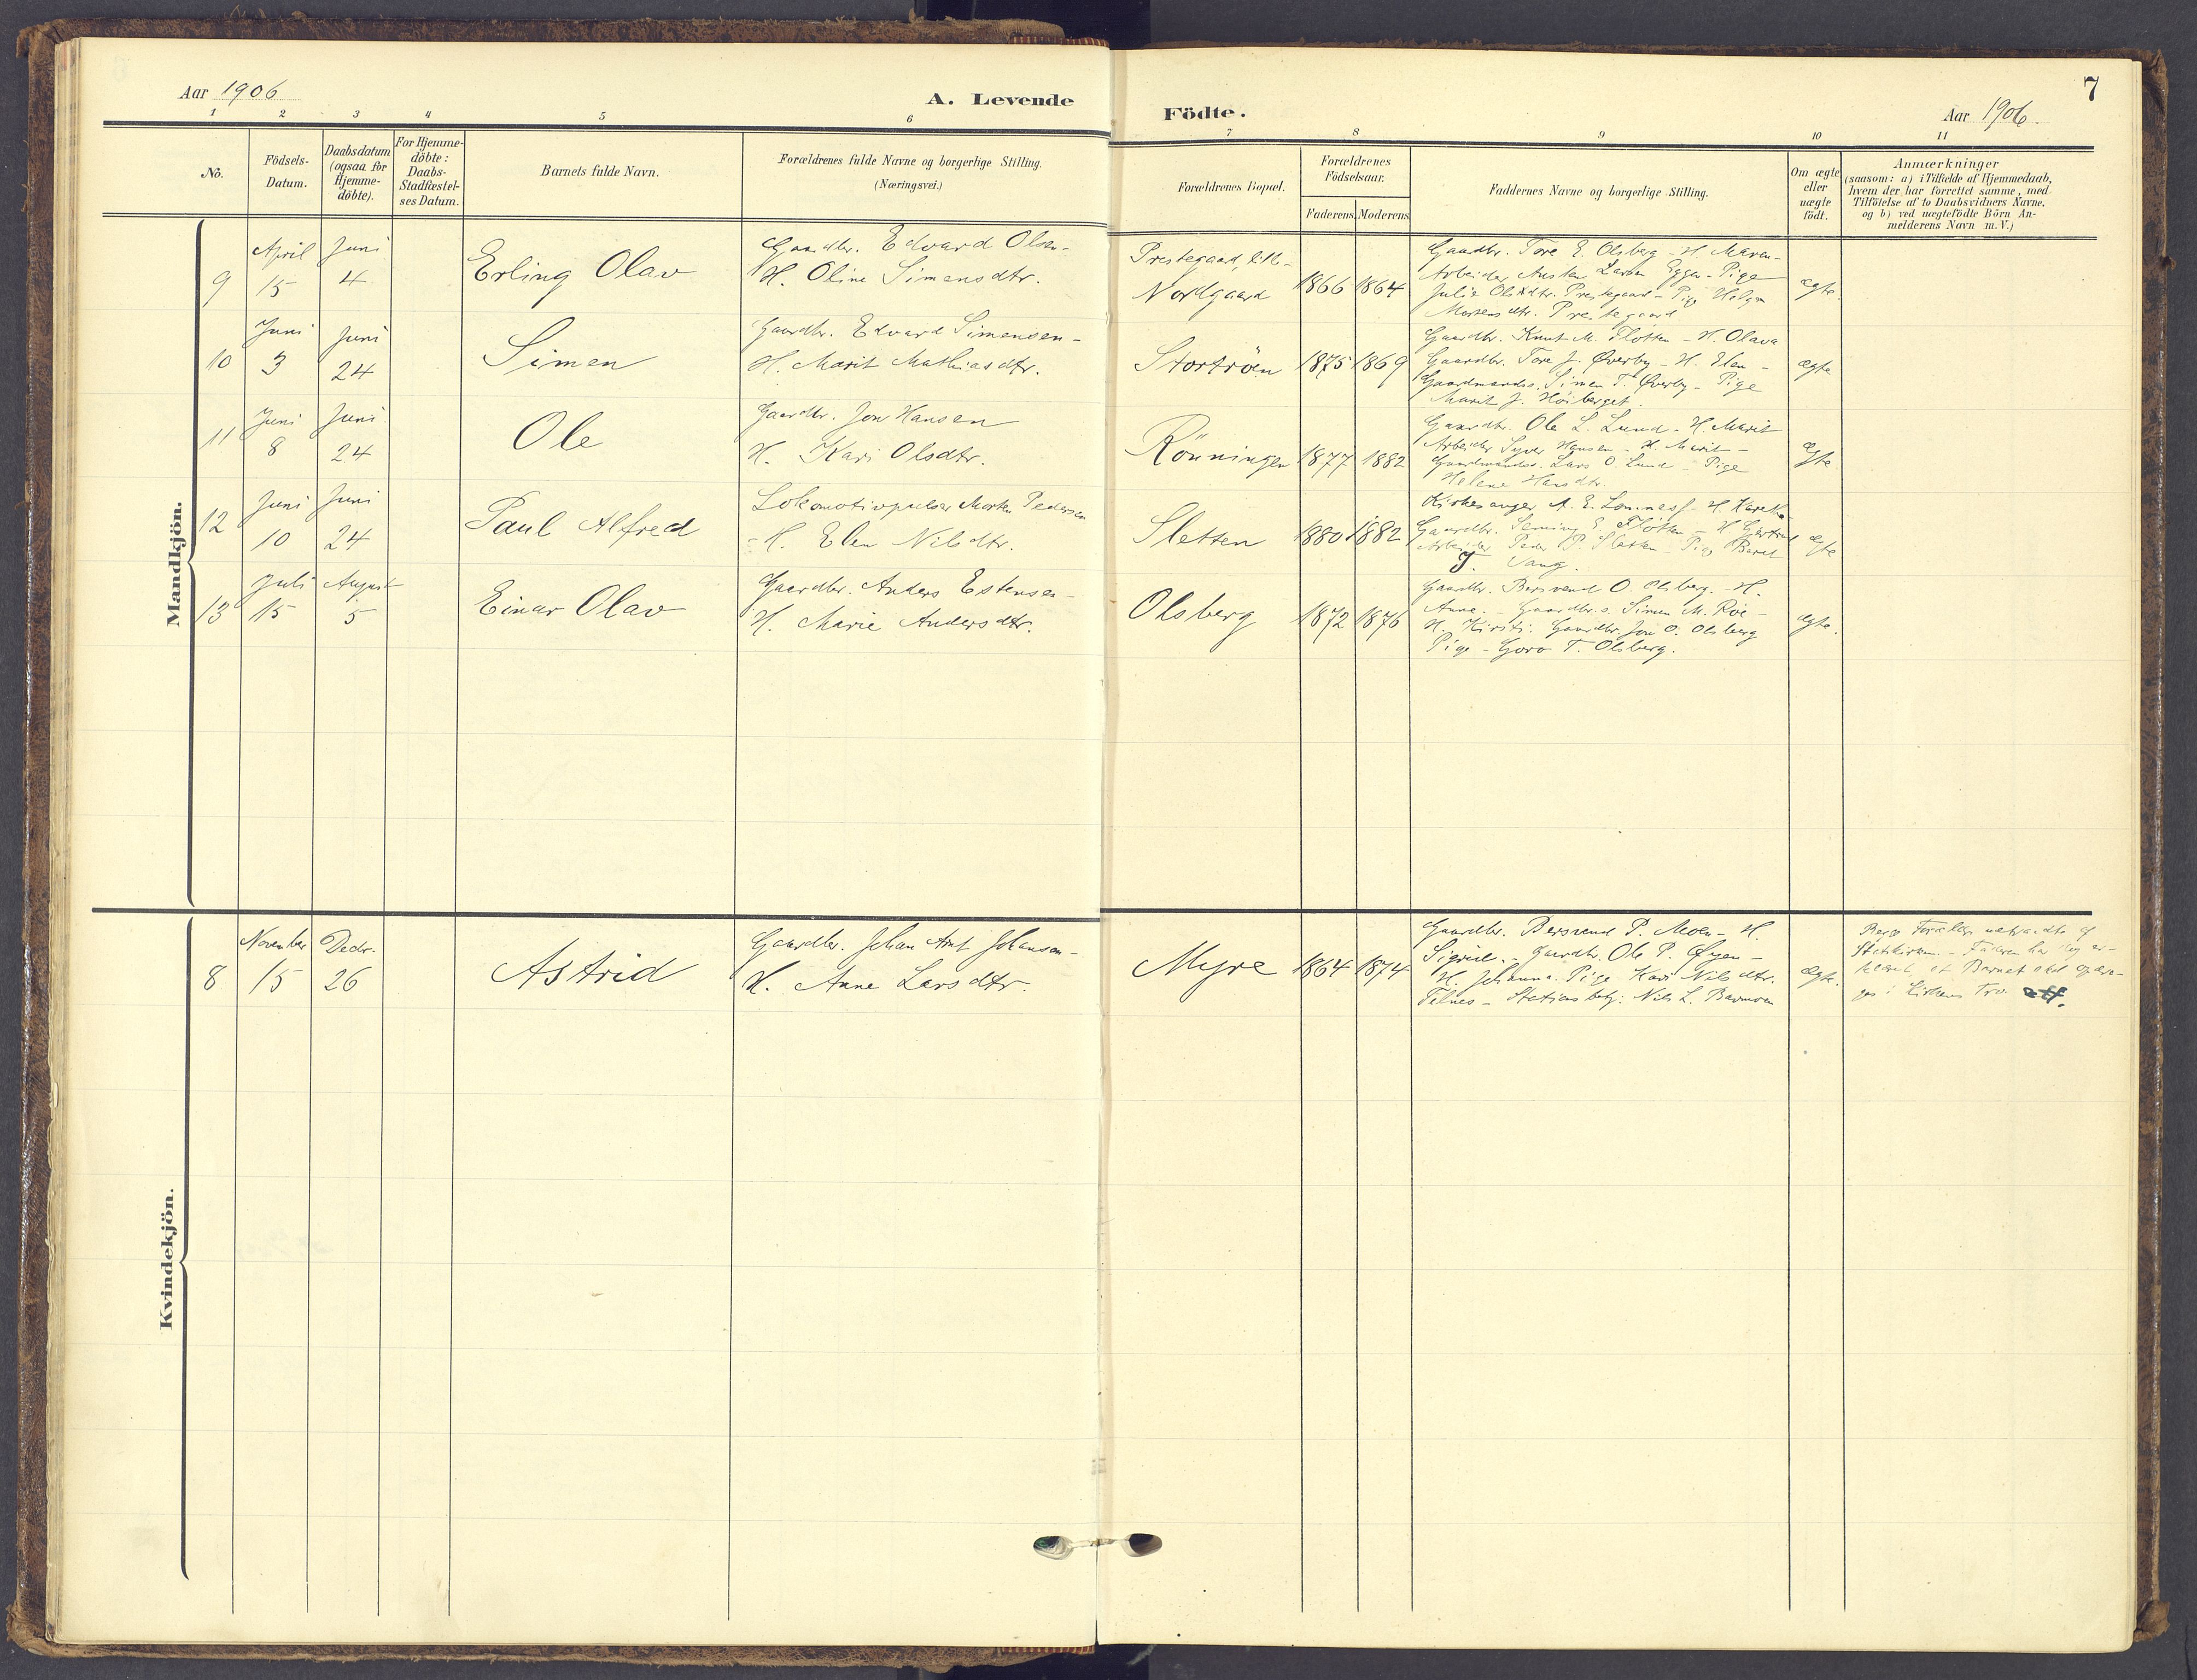 7
Aar 1906
A. Levende
Födte.
Aar 1906.
1 2 3 4 5 6 7 8 9 10 11
No.
Födsels-
Datum.
Daabsdatum
(ogsaa for
Hjemme-
döbte).
For Hjemme-
döbte:
Daabs-
Stadfæstel-
ses Datum.
Barnets fulde Navn.
Forældrenes fulde Navne og borgerlige Stilling.
(Næringsvei.)
Forældrenes Bopæl.
Forældrenes
Födselsaar.
Faderens.
Moderens
Faddernes Navne og borgerlige Stilling.
Om ægte
eller
uægte
födt.
Anmærkninger
(saasom: a) i Tilfælde af Hjemmedaab,
hvem der har forrettet samme, med
Tilföielse af to Daabsvidners Navne,
og b) ved uægtefödte Börn An-
melderens Navn m.V.)
Mandkjön.
9
April
15
Juni
4
Erling Olav
Gaardbr. Edvard Olsen-
H. Oline Simensdtr.
Prestegaard, lill-
Nordgaard
1866
1864
Gaardbr. Tore E. Olsberg - H. Maren-
Arbeider Larsen Eggen - Pige
Julie Olsdtr. Prestegaard - Pige Helga
Mortensdtr. Prestegaard
ægte.
10
Juni
3
Juni
24
Simen
Gaardbr. Edvard Simensen-
H. Marit Mathiasdtr.
Stortröen
1875
1869
Gaardbr. Knut M. Flotten - H. Olava
Gaardbr. Tore J. Øverby - H. Elen -
Gaardmands. Simen T. Øverby - Pige
Marit J. Höiberget.
ægte
11
Juni
8
Juni
24
Ole
Gaardbr. Jon Hansen
H. Kari Olsdtr.
Rönningen
1877
1882
Gaardbr. Ole L. Lund - H. Marit
Arbeider Syver Hansen - H. Marit -
Gaardmands. Lars O. Lund - Pige
Helene Hansdtr.
ægte
12
Juni
10
Juni
24
Paul Alfred
Lokomotivpudser Morten Pedersen
- H. Elen Nilsdtr.
Sletten
1880
1882
Kirkesanger A. E. - H.
Gaardbr. E. Flotten - H. Gjertrud
Arbeider Peder P. Sletten - Pige Beret
J. Vang.
ægte
13
Juli
15
August
5
Einar Olav
Gaardbr. Anders Estensen -
H. Marie Andersdtr.
Olsberg
1872
1876
Gaardbr. Bersvend O. Olsberg. H.
Anne. - Gaardbr.s. Simen M. Röe -
H. Kirsti. Gaardbr. Jon O. Olsberg
Pige - Goro T. Olsberg.
ægte.
Kvindekjön.
8
November
15
Decbr.
26
Astrid
Gaardbr. Johan Arnt Johansen -
H. Anne Larsdtr.
Myre
1864
1874
Gaardbr. Bersvend P. Moen - H.
Sigrid. - Gaardbr. Ole P. Øyen -
H. Johanna. Pige Kari Nilsdtr.
Telnes - Stationsbetj. Nils L. Barmoen
ægte.
Begge Forældre udtraadte af
Statskirken. - Faderen har dog er-
klæret, at Barnet skal opdra-
ges i Kirkens Tro.